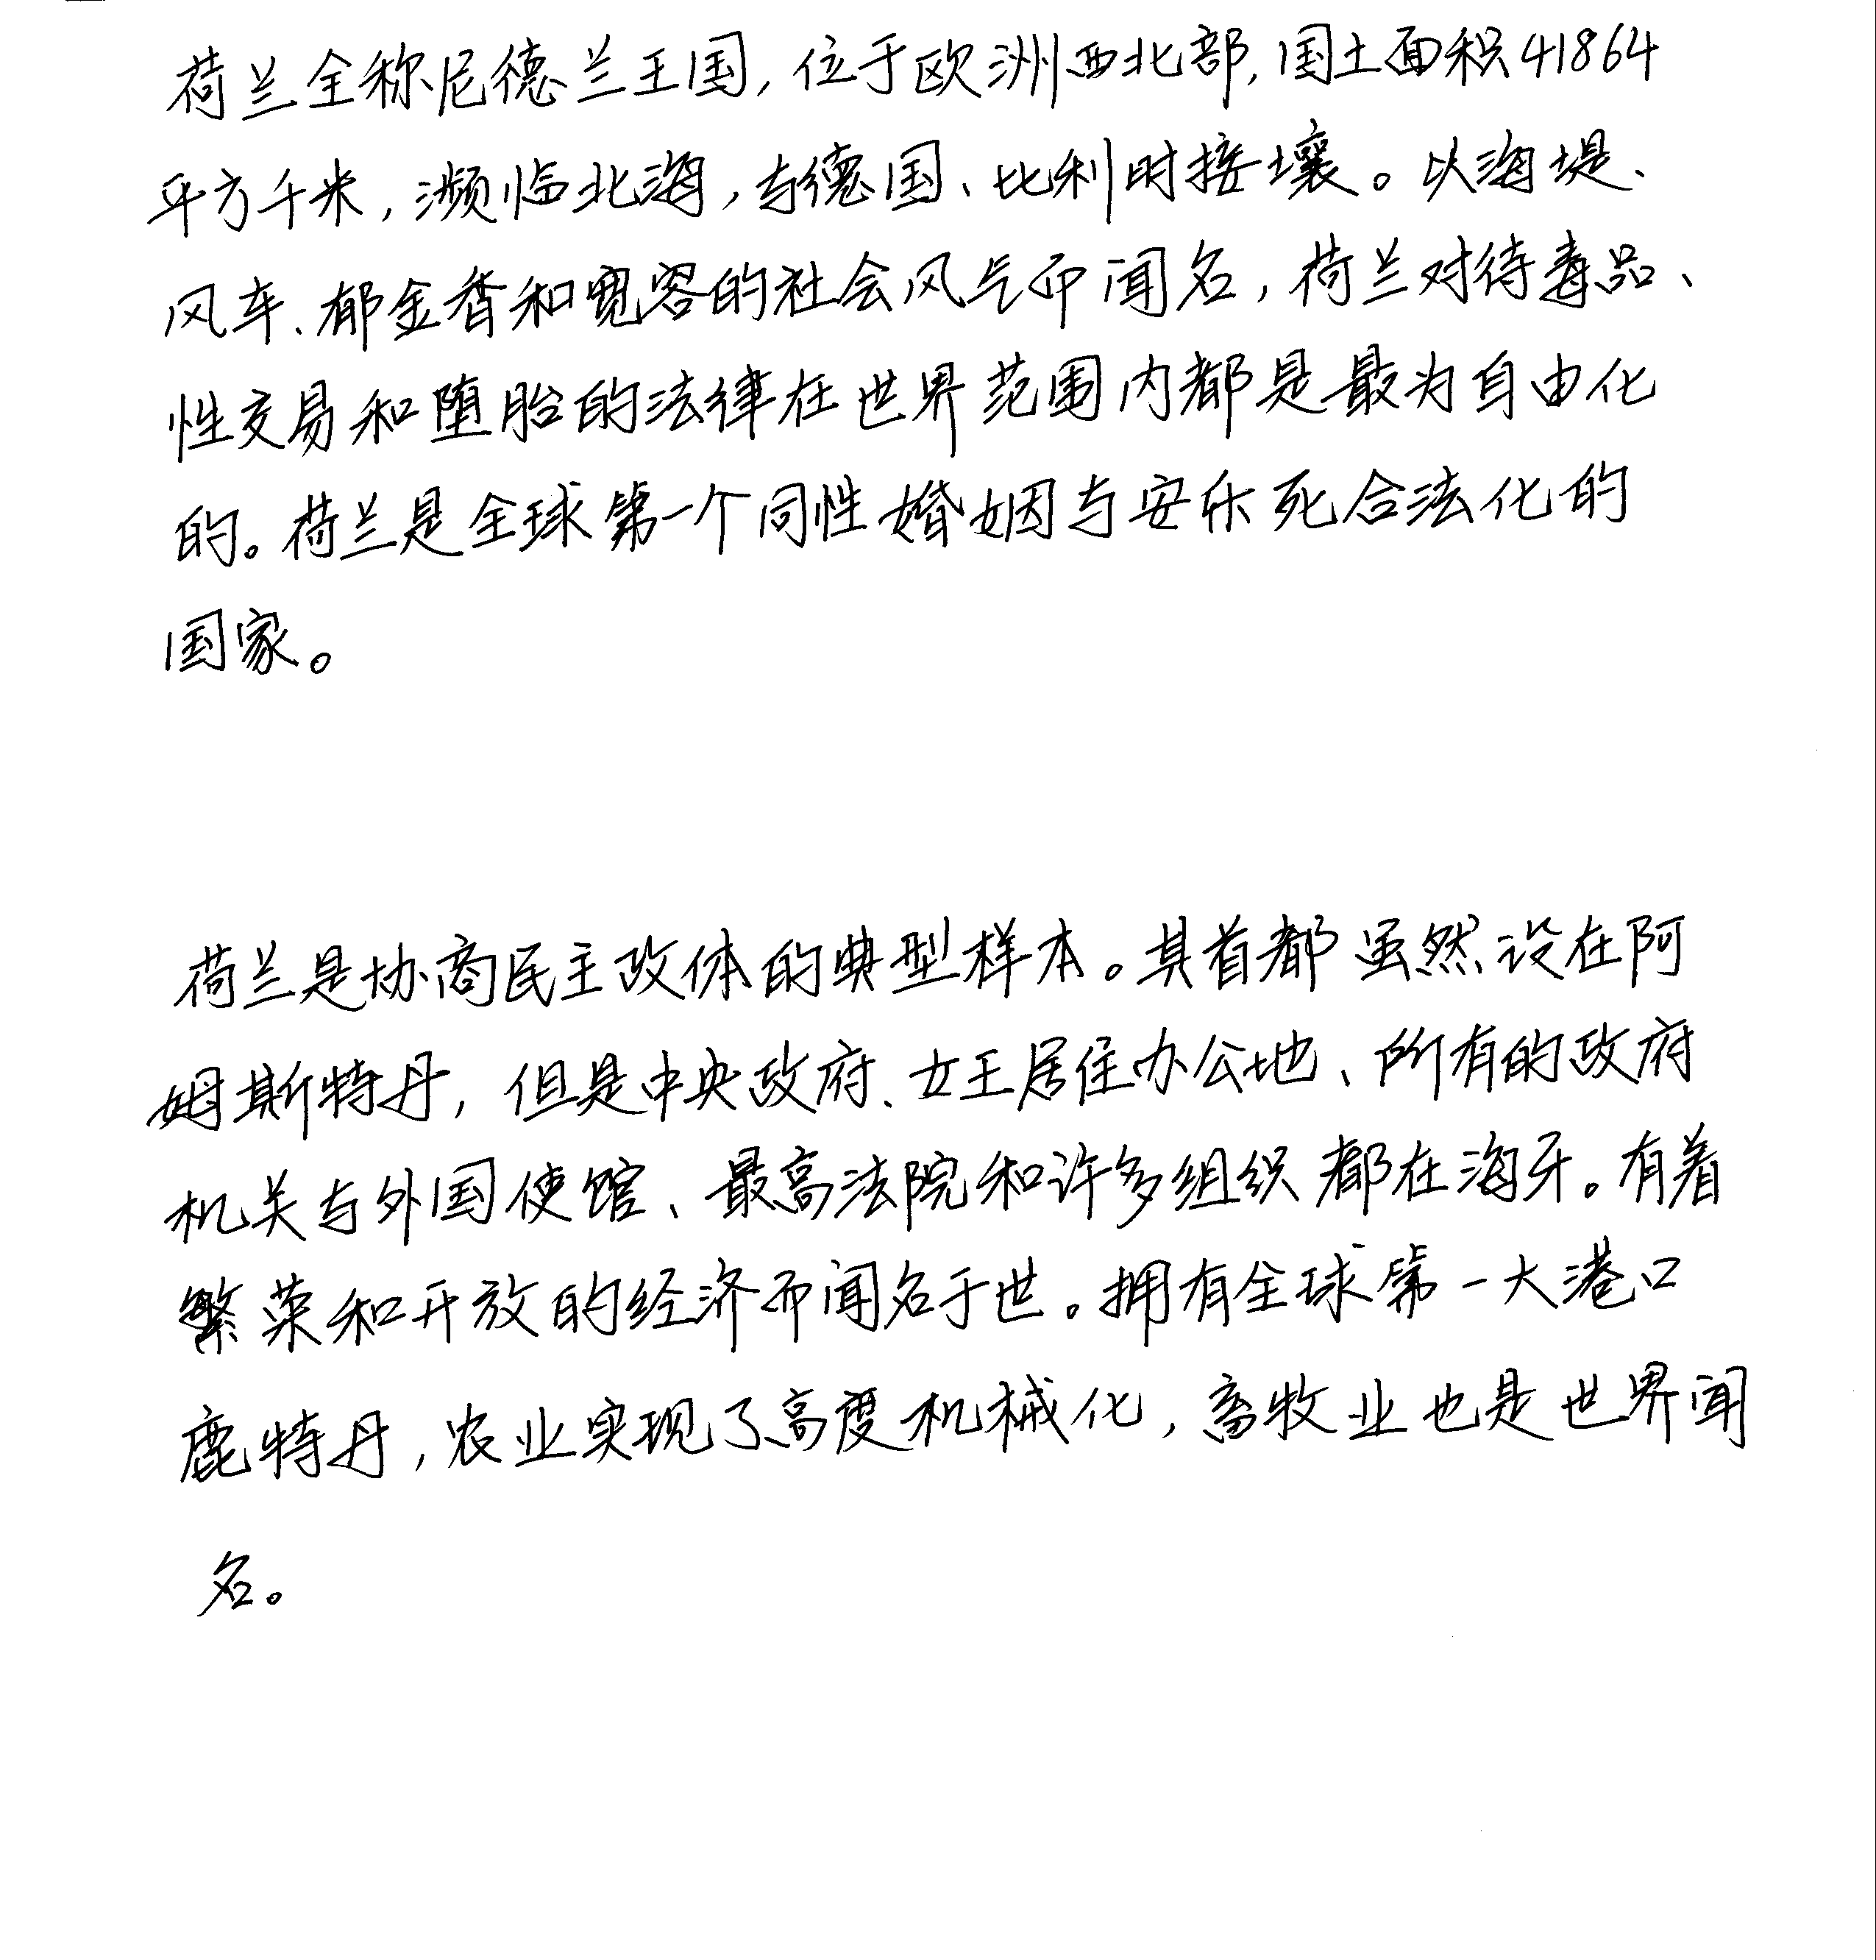 荷兰全称尼德兰王国,位于欧洲西北部,国土面积41864
平方千米,濒临北海,与德国、比利时接壤。以海堤、
风车、郁金香和宽容的社会风气而闻名,荷兰对待毒品、
性交易和堕胎的法律在世界范围内都是最为自由化
的。荷兰是全球第一个同性婚姻与安乐死合法化的
国家。
荷兰是协商民主政体的典型样本。其首都虽然设在阿
姆斯特丹,但是中央政府、女王居住办公地、所有的政府
机关与外国使馆、最高法院和许多组织都在海牙。有着
繁荣和开放的经济而闻名于世。拥有全球第一大港口
鹿特丹,农业实现了高度机械化,畜牧业也是世界闻
名。